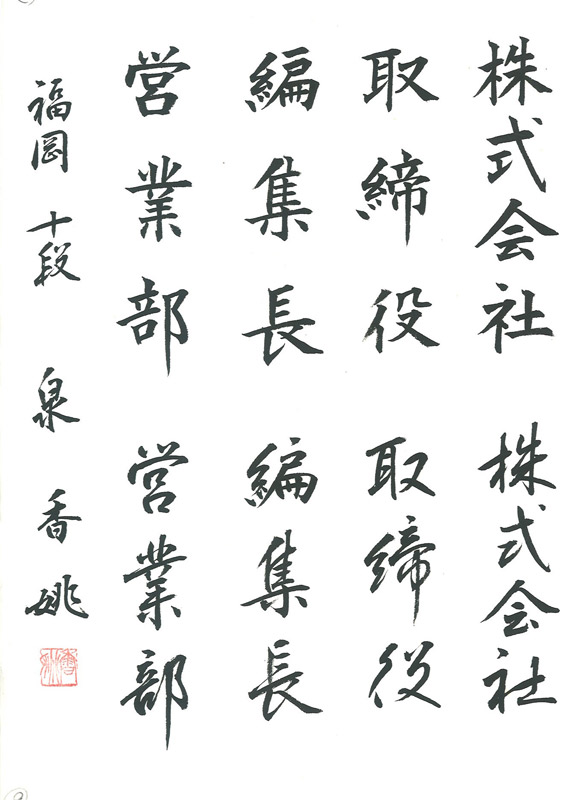 株式会社 株式会社
取締役 取締役
編集長 編集長
営業部 営業部
福岡 十段 泉 香姚